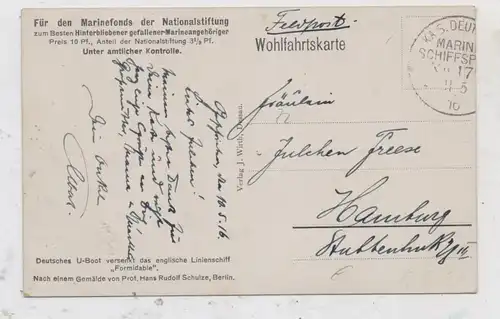 Für den Marinefonds der Nationalstiftung
zum Besten Hinterbliebener gefallener Marineangehöriger
Preis 10 Pf., Anteil der Nationalstiftung 3⅓ Pf.
Unter amtlicher Kontrolle.
Feldpost.
Wohlfahrtskarte
KAIS. DEUT
MARIN
SCHIFFSP
17
11 5
16
den 10.5.16.
liebes Julchen!
Meinen besten Dank für
Deine Karte und
Dein Onkel
Albert.
Fräulein
Julchen Freese
Hamburg
III
Deutsches U-Boot versenkt das englische Linienschiff
„Formidable".
Nach einem Gemälde von Prof. Hans Rudolf Schulze, Berlin.
Verlag J. Wöbb,